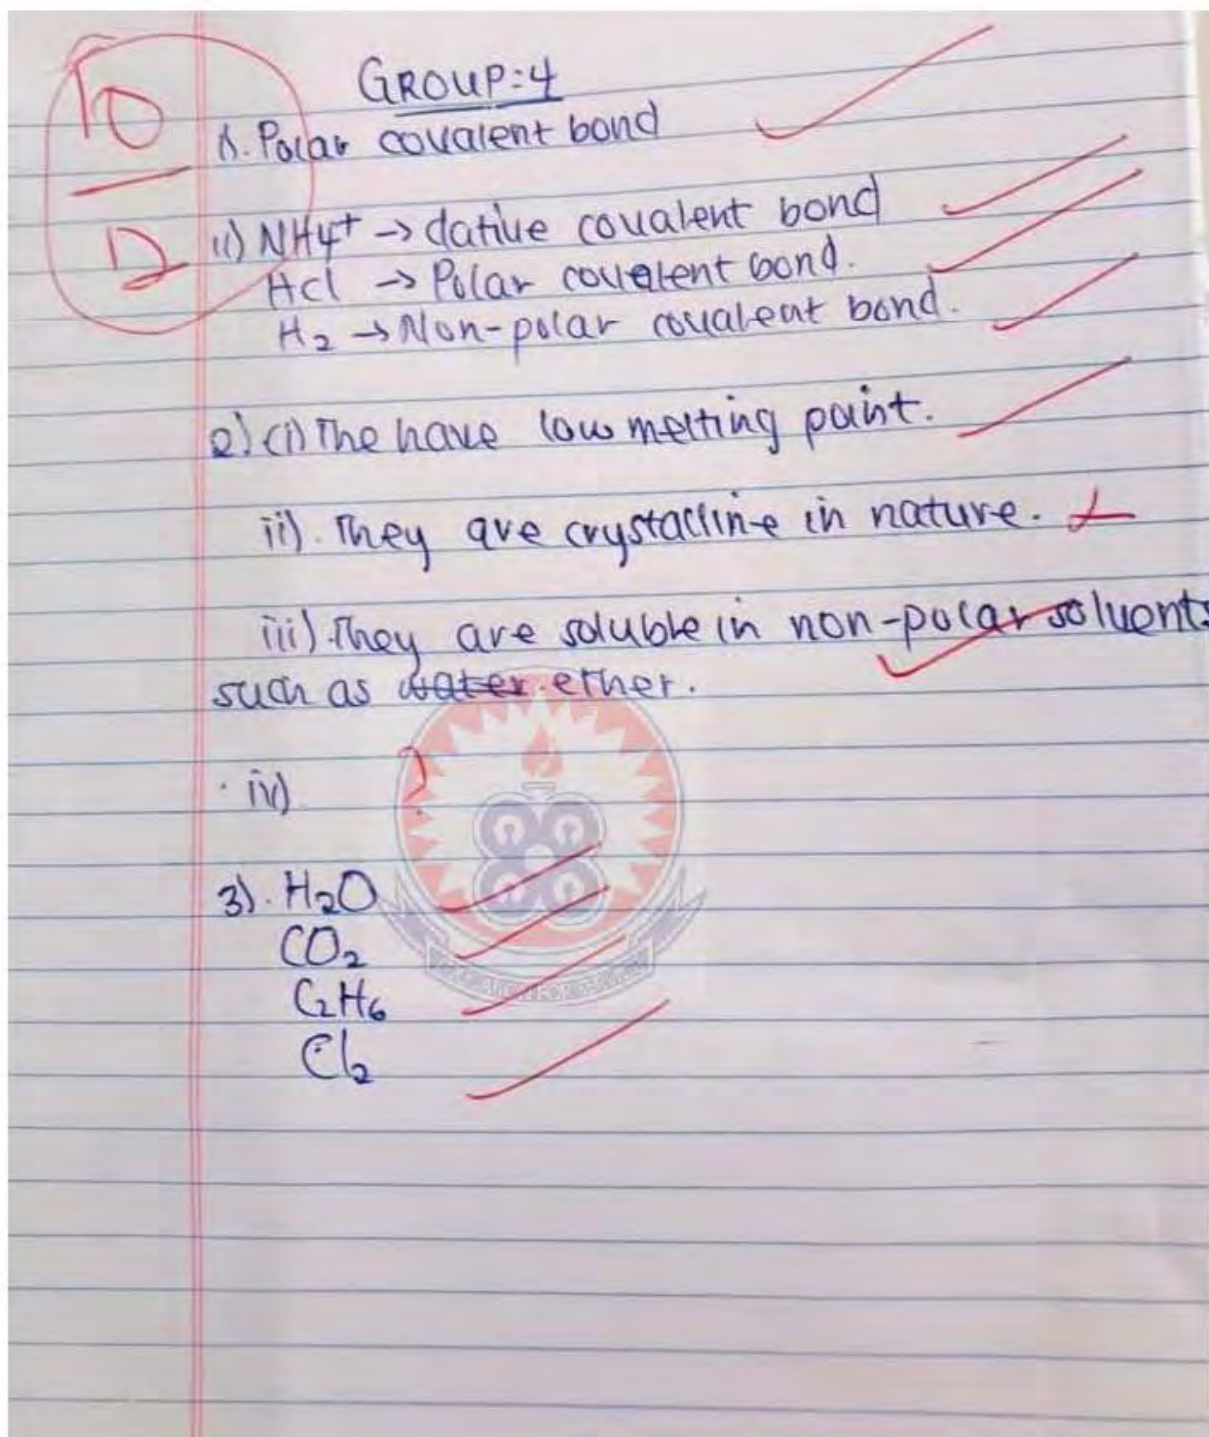 GROUP:4
10
i). Polar covalent bond
12
ii) NH4+ → dative covalent bond
HCl → Polar covalent bond.
H2 → Non-polar covalent bond.
2) (i) The have low melting point.
ii). They are crystalline in nature.
iii) They are soluble in non-polar solvents
such as water. ether.
iv) ?
3). H2O
CO2
C2H6
Cl2